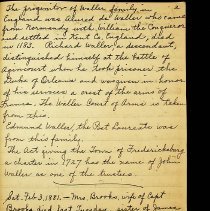 The progenitor of Waller family, in
England was Alured de Waller who came
from Normandy with William the Conqueror
and settled in Kent Co England, died
in 1183. Richard Waller, a descendant,
distinguished himself at the battle of
Agincourt when he took prisoner the
Duke of Orleans and was given in honor
of his services a crest of the arms of
France. The Waller Coat of Arms is taken
from this.
Edmund Waller, the Poet Laureate was
from this family.
The Act giving the Town of Fredericksburg
a charter in 1727 has the name of John
Waller as one of the trustees.
Sat. Feb. 3, 1881. - Mrs. Brooks, wife of Capt
Brooks died last Tuesday, sister of James